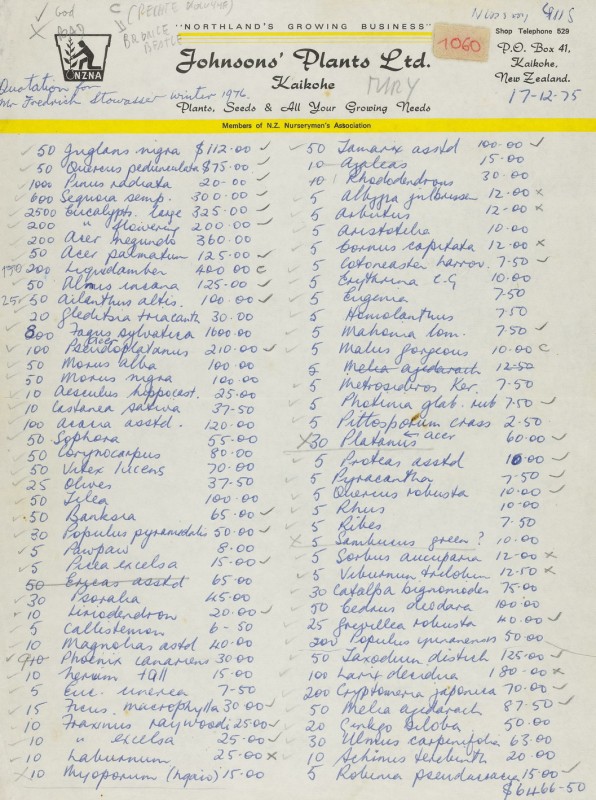 ✓ God
C
X BAD
BRONCE
BEATLE
"NORTHLAND'S GROWING BUSINESS"
4115
1060
Shop Telephone 529
NZNA
Johnsons' Plants Ltd.
P.O. Box 41,
Kaikohe
Kaikohe,
New Zealand.
Quotation for
Mr Fredrich Stowasser winter 1976.
Plants, Seeds & All Your Growing Needs
17-12-75
Members of N.Z. Nurserymen's Association
50 Juglans nigra $112.00
50 Quercus pedunculata $75.00 ✓
1000 Pinus radiata 20-00 ✓
600 Sequoia semp. 300.00 ✓
2500 Eucalypts. large 325.00 ✓
200 " flowering 200.00 ✓
200 Acer negundo 360.00
50 Acer palmatum 125.00 ✓
200 Liquidamber 400 00 C
50 Alnus incana 125.00 ✓
50 Ailanthus altis. 100.00 ✓
20 Gleditsia triacanth 30.00
800 Fagus sylvatica 1600.00
100 Acer Pseudoplatanus 210.00 ✓
50 Morus alba 100.00
50 Morus nigra 100.00
10 Aesculus hippocast. 25.00
10 Castanea sativa 37-50
100 acacia asstd. 120.00
50 Sophora 55.00
50 Corynocarpus 80.00
50 Vitex lucens 70.00
25 Olives 37.50
50 Tilea 100.00
50 Banksia 65.00 ✓
30 Populus pyramidalis 50.00 ✓
5 Pawpaw 8.00
5 Picea excelsa 15.00 ✓
50 Ericas asstd 65.00
30 Psoralia 45.00
10 Liriodendron 20.00 ✓
5 Callistemon 6-50
10 Magnolias astd 40.00
10 Phoenix canariens 30.00
10 nerium tall 15.00
5 Euc. cinerea 7-50
15 Ficus. macrophylla 30.00 ✓
10 Fraxinus raywoodi 25.00 ✓
10 " excelsa 25.00 ✓
10 Laburnum 25.00 x
10 Myoporum (ngaio) 15.00
50 Tamarix asstd 100.00 ✓
10 Azaleas 15.00
10 Rhododendrons 30.00
5 Albizzia julbrissen 12.00 x
5 Arbutus 12-00 x
5 Aristotelia 10.00
5 Cornus capitata 12.00 x
5 Cotoneaster horrov. 7-50 ✓
5 Erythrina C.G 10.00
5 Eugenia 7-50
5 Homolanthus 7.50
5 Mahonia lom. 7.50 ✓
5 Malus gorgeous 10.00 C
5 Melia azedarach 12-50
5 Metrosideros Ker. 7-50
5 Photinia glab. rub 7.50 ✓
5 Pittosporum crass 2.50
X 30 Platanus acer 60.00 ✓
5 Proteas asstd 10.00 ✓
5 Pyracantha 7-50 ✓
5 Quercus robusta 10.00 ✓
5 Rhus 10.00
5 Ribes 7.50
x 5 Sambucus green? 10.00
5 Sorbus aucuparia 12-00 x
5 Viburnum trilobum 12.50 x
30 Catalpa bignomodes 75.00
50 Cedrus deodara 100.00
25 Grevillea robusta 40.00 ✓
200 Populus yunnanensis 50.00
50 Taxodium distich 125.00 ✓
100 Larix decidua 180-00 x
200 Cryptomeria japonica 70.00 ✓
50 Melia azedarach 87-50 ✓
20 Ginkgo biloba 50.00
30 Ulmus carpinifolia 63.00
10 Schinus terebinth 20.00
5 Robinia pseudacacia 15.00 ✓
$6466-50